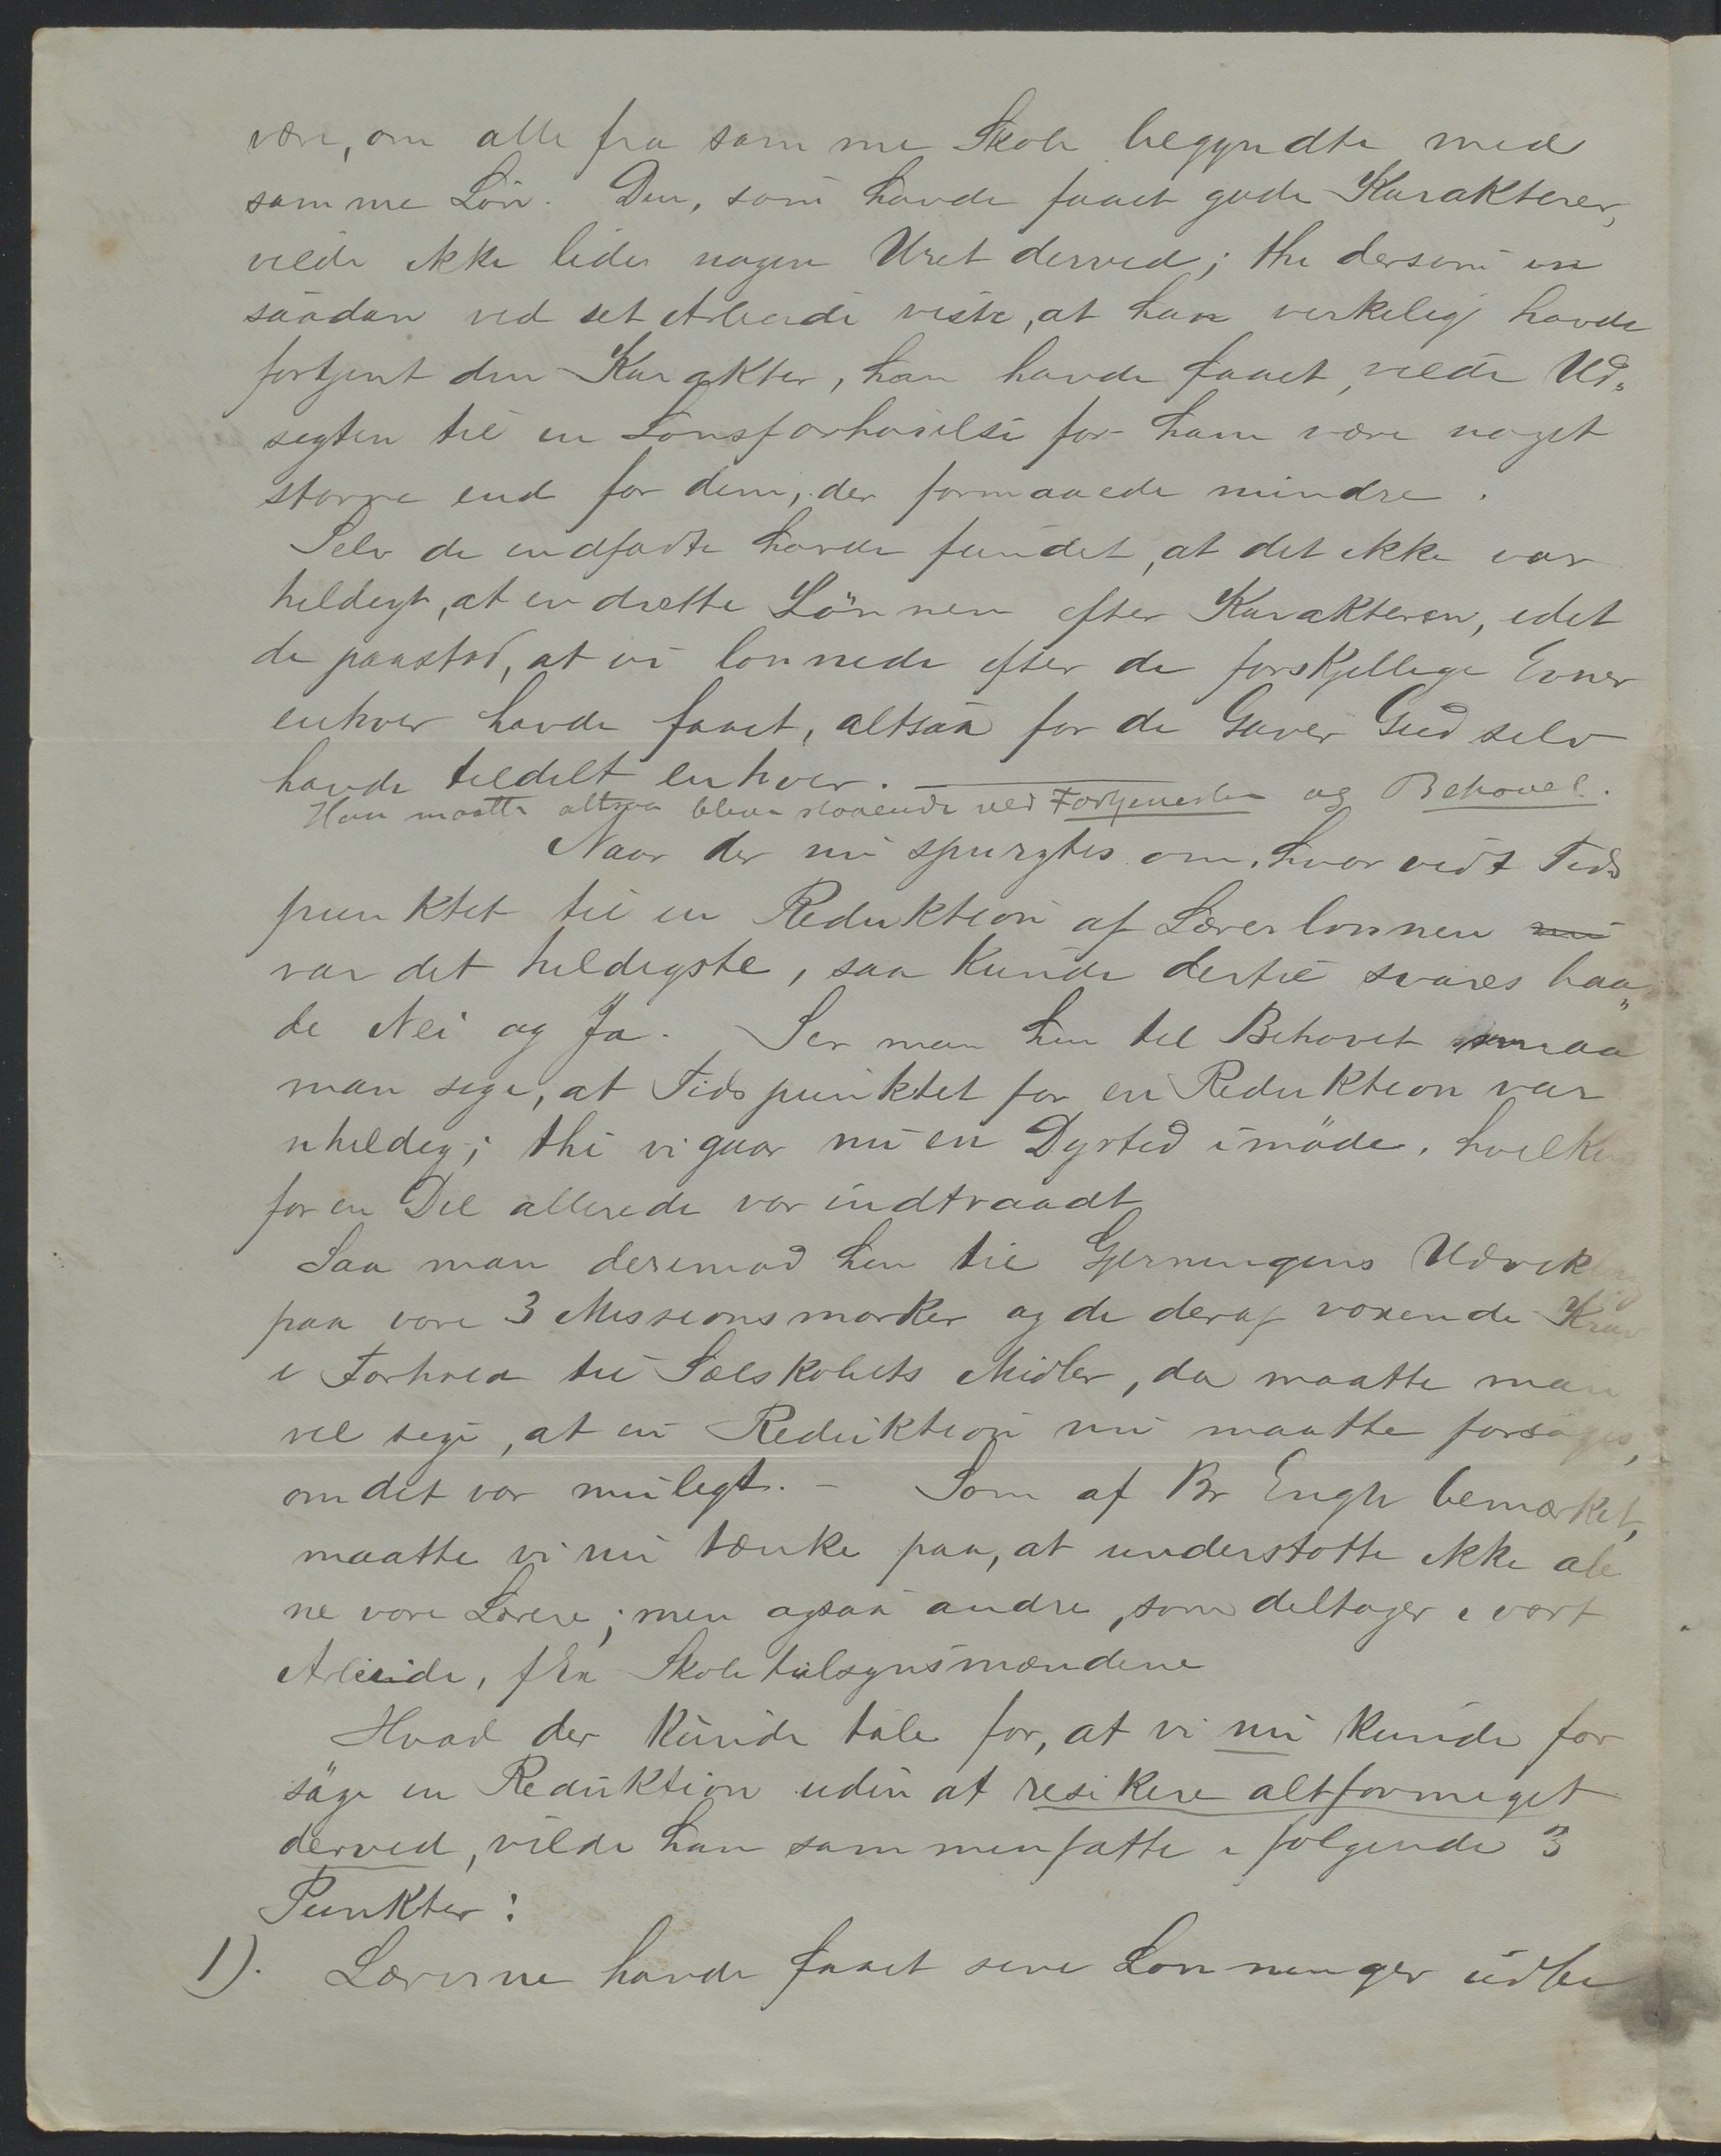 være, om alle fra samme Skole begyndte med
samme Lön. Den, som havde faaet gode Karakterer,
vilde ikke lide nogen Uret derved; thi dersom en
saadan ved set Arbeide viste, at han virkelig havde
fortjent den Karakter, han havde faaet, vilde Ud„
sigten til en Lønsforhøielse for ham være noget
større end for dem, der formaaede mindre.
Selv de indfødte havde fundet, at det ikke var
heldigt, at indrette Lönnen efter Karakteren, idet
de paastod, at vi lønnede efter de forskjellige Evner
enhver havde faaet, altsaa for de Gaver Gud selv
havde tildelt enhver. ———
Han maatte altsaa blive staaende ved Fortjenesten og Behovet.
Naar der nu spurgtes om, hvorvidt Tids
punktet til en Reduktion af Lærerlønnen nu
var det heldigste, saa kunde dertil svares baa„
de Nei og Ja. Ser man hen til Behovet maa
man sige, at Tidspunktet for en Reduktion var
uheldig; thi vi gaar nu en Dyrtid imöde, hvilken
for en Del allerede var indtraadt
Saa man derimod hen til Gjerningens Udvikling
paa vore 3 Missionsmarker og de deraf voxende Krav
i Forhold til Selskabets Midler, da maatte man
vel sige, at en Reduktion nu maatte forsøges,
om det var muligt. – Som af Br Engh bemærket,
maatte vi nu tænke paa, at understøtte ikke ale
ne vore Lærere; men ogsaa andre, som deltager i vort
Arbeide, f Ex Skoletilsynsmændene
Hvad der kunde tale for, at vi nu kunde for
söge en Reduktion uden at resikere altformeget
derved, vilde han sammenfatte i følgende 3
Punkter:
1). Lærerne havde faaet sine Lønninger udbe